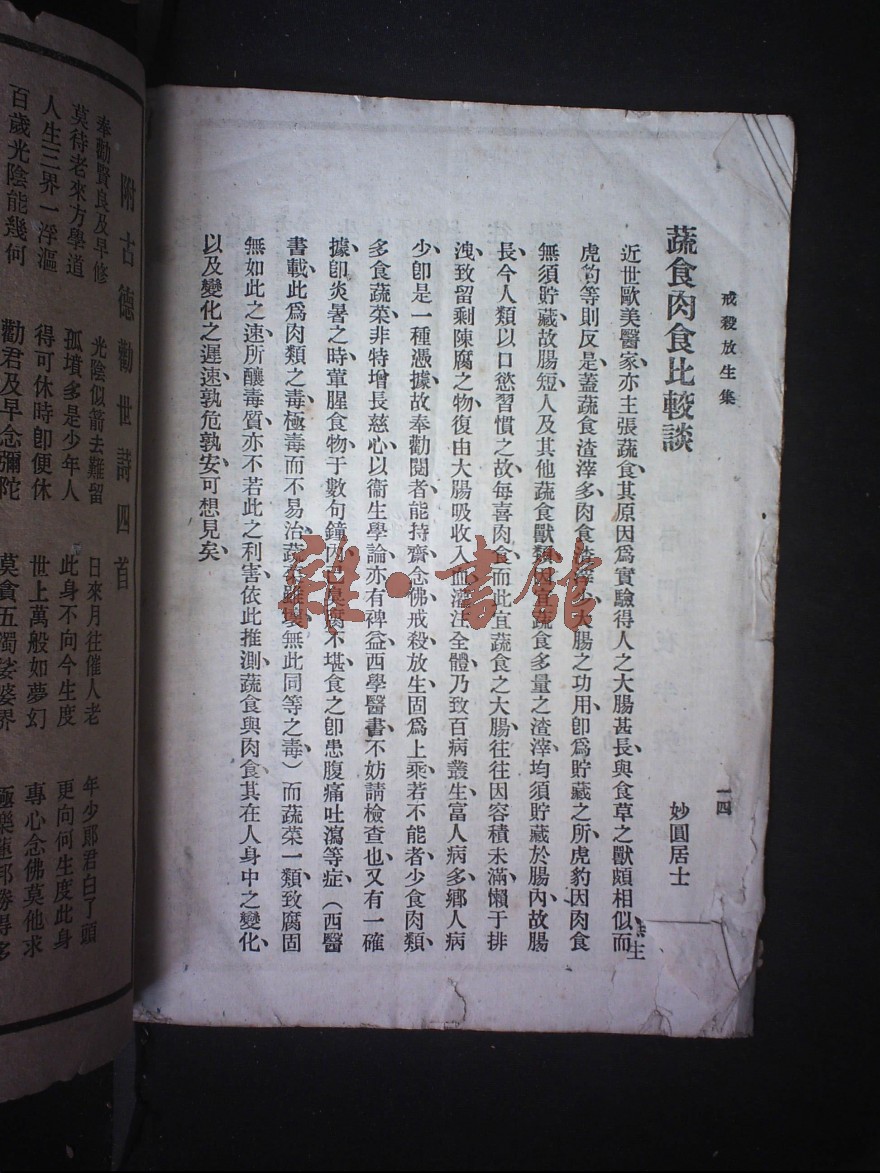 戒殺放生集
一四
蔬食肉食比較談
妙圓居士
近世歐美醫家亦主張蔬食、其原因爲實驗得人之大腸甚長、與食草之獸頗相似、而
生
虎豹等則反是、蓋蔬食渣滓多、肉食渣滓少、大腸之功用、卽爲貯藏之所、虎豹因肉食
無須貯藏、故腸短、人及其他蔬食獸類、因宜蔬食、多量之渣滓、均須貯藏於腸內、故腸
長、今人類以口慾習慣之故、每喜肉食、而此宜蔬食之大腸、往往因容積未滿、懶于排
洩、致留剩陳腐之物、復由大腸吸收入血、灌注全體、乃致百病叢生、富人病多、鄉人病
少、卽是一種憑據、故奉勸閱者、能持齋念佛、戒殺放生、固爲上乘、若不能者、少食肉類、
多食蔬菜、非特增長慈心、以衞生學論、亦有裨益、西學醫書、不妨請檢查也、又有一確
據、卽炎暑之時、葷腥食物、于數句鐘內、已臭腐不堪、食之卽患腹痛吐瀉等症、（西醫
書載此爲肉類之毒、極毒而不易治、蔬食雖製無此同等之毒）而蔬菜一類、致腐固
無如此之速、所釀毒質、亦不若此之利害、依此推測、蔬食與肉食、其在人身中之變化、
以及變化之遲速、孰危孰安、可想見矣、
雜·書館
附古德勸世詩四首
奉勸賢良及早修 光陰似箭去難留 日來月往催人老 年少郎君白了頭
莫待老來方學道 孤墳多是少年人 此身不向今生度 更向何生度此身
人生三界一浮漚 得可休時卽便休 世上萬般如夢幻 專心念佛莫他求
百歲光陰能幾何 勸君及早念彌陀 莫貪五濁娑婆界 極樂蓮邦勝得多